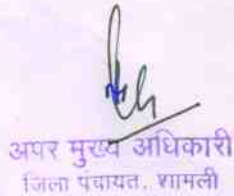 अपर मुख्य अधिकारी
जिला पंचायत, शामली